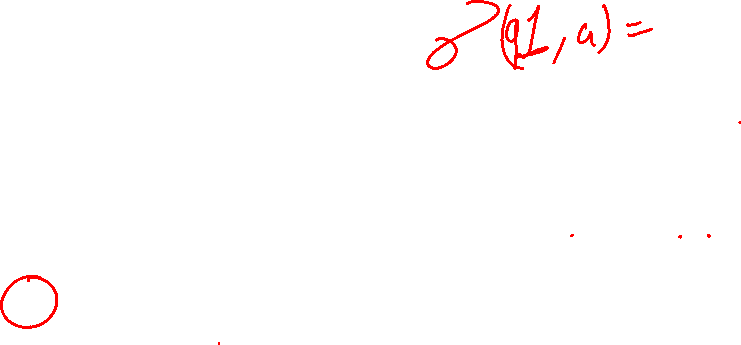 δ(q1, a) =